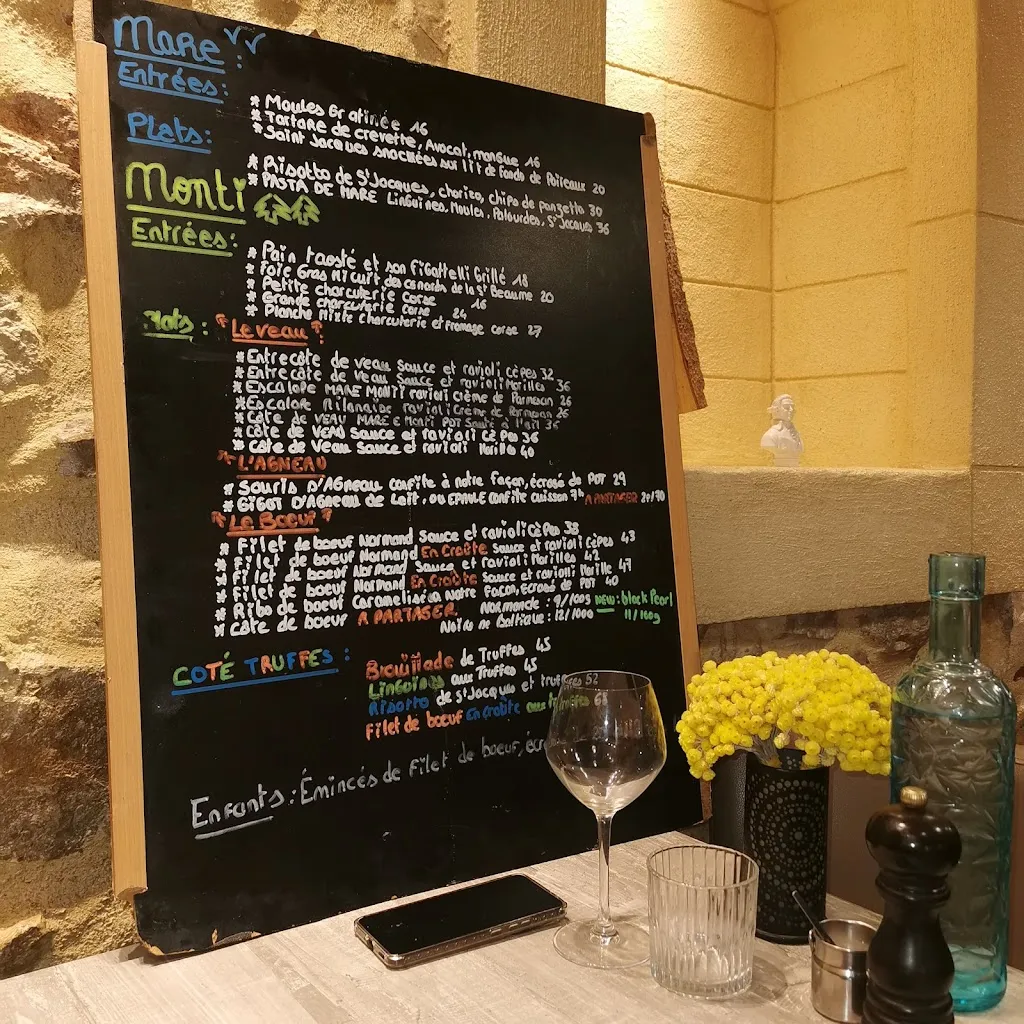 Mare
Entrées:
* Moules Gratinée 16
* Tartare de crevette, Avocat, mangue 16
* Saint Jacques snackées sur lit de fondo de Poireaux 20
Plats:
* Risotto de St Jacques, chorizo, chips de panzetta 30
* PASTA DE MARE Linguines, Moules, Palourdes, St Jacques 36
Monti
Entrées:
* Pain toasté et son Figattelli Grillé 18
* Foie Gras Micuit des canards de la Ste Beaume 20
* Petite charcuterie corse 16
* Grande charcuterie corse 24
* Planche Mixte charcuterie et fromage corse 27
Plats:
* Le veau *:
* Entrecôte de veau Sauce et ravioli cèpes 32
* Entrecôte de veau Sauce et ravioli Morilles 36
* Escalope MARE MONTI ravioli crème de Parmesan 26
* Escalope Milanaise ravioli Crème de Parmesan 26
* Côte de VEAU MARE E MONTI POT Sauté à l'ail 36
* Côte de VEAU Sauce et ravioli cèpes 36
* Côte de veau Sauce et ravioli Morilles 40
* L'AGNEAU
* Souris D'AGneau confite à notre façon, écrasé de POT 29
* GIGOT D'AGneau de Lait, ou EPAULE confite cuisson 7h A PARTAGER
* Le Boeuf *
* Filet de boeuf Normand Sauce et ravioli cèpes 38
* Filet de boeuf Normand En Croûte Sauce et ravioli cèpes 43
* Filet de boeuf Normand Sauce et ravioli Morilles 42
* Filet de boeuf Normand En Croûte Sauce et ravioli Morille 47
* Ribs de boeuf Caramelisé à Notre Façon, Écrasé de POT 40
* côte de boeuf A PARTAGER. Normande: 9/100g NEW: black Pearl
Noire de Baltique: 12/100g 11/100g
COTÉ TRUFFES:
Brouillade de Truffes 45
Linguines aux Truffes 45
Risotto de St Jacques et truffes 52
Filet de boeuf En Croûte aux truffes
Enfants: Émincés de Filet de boeuf,